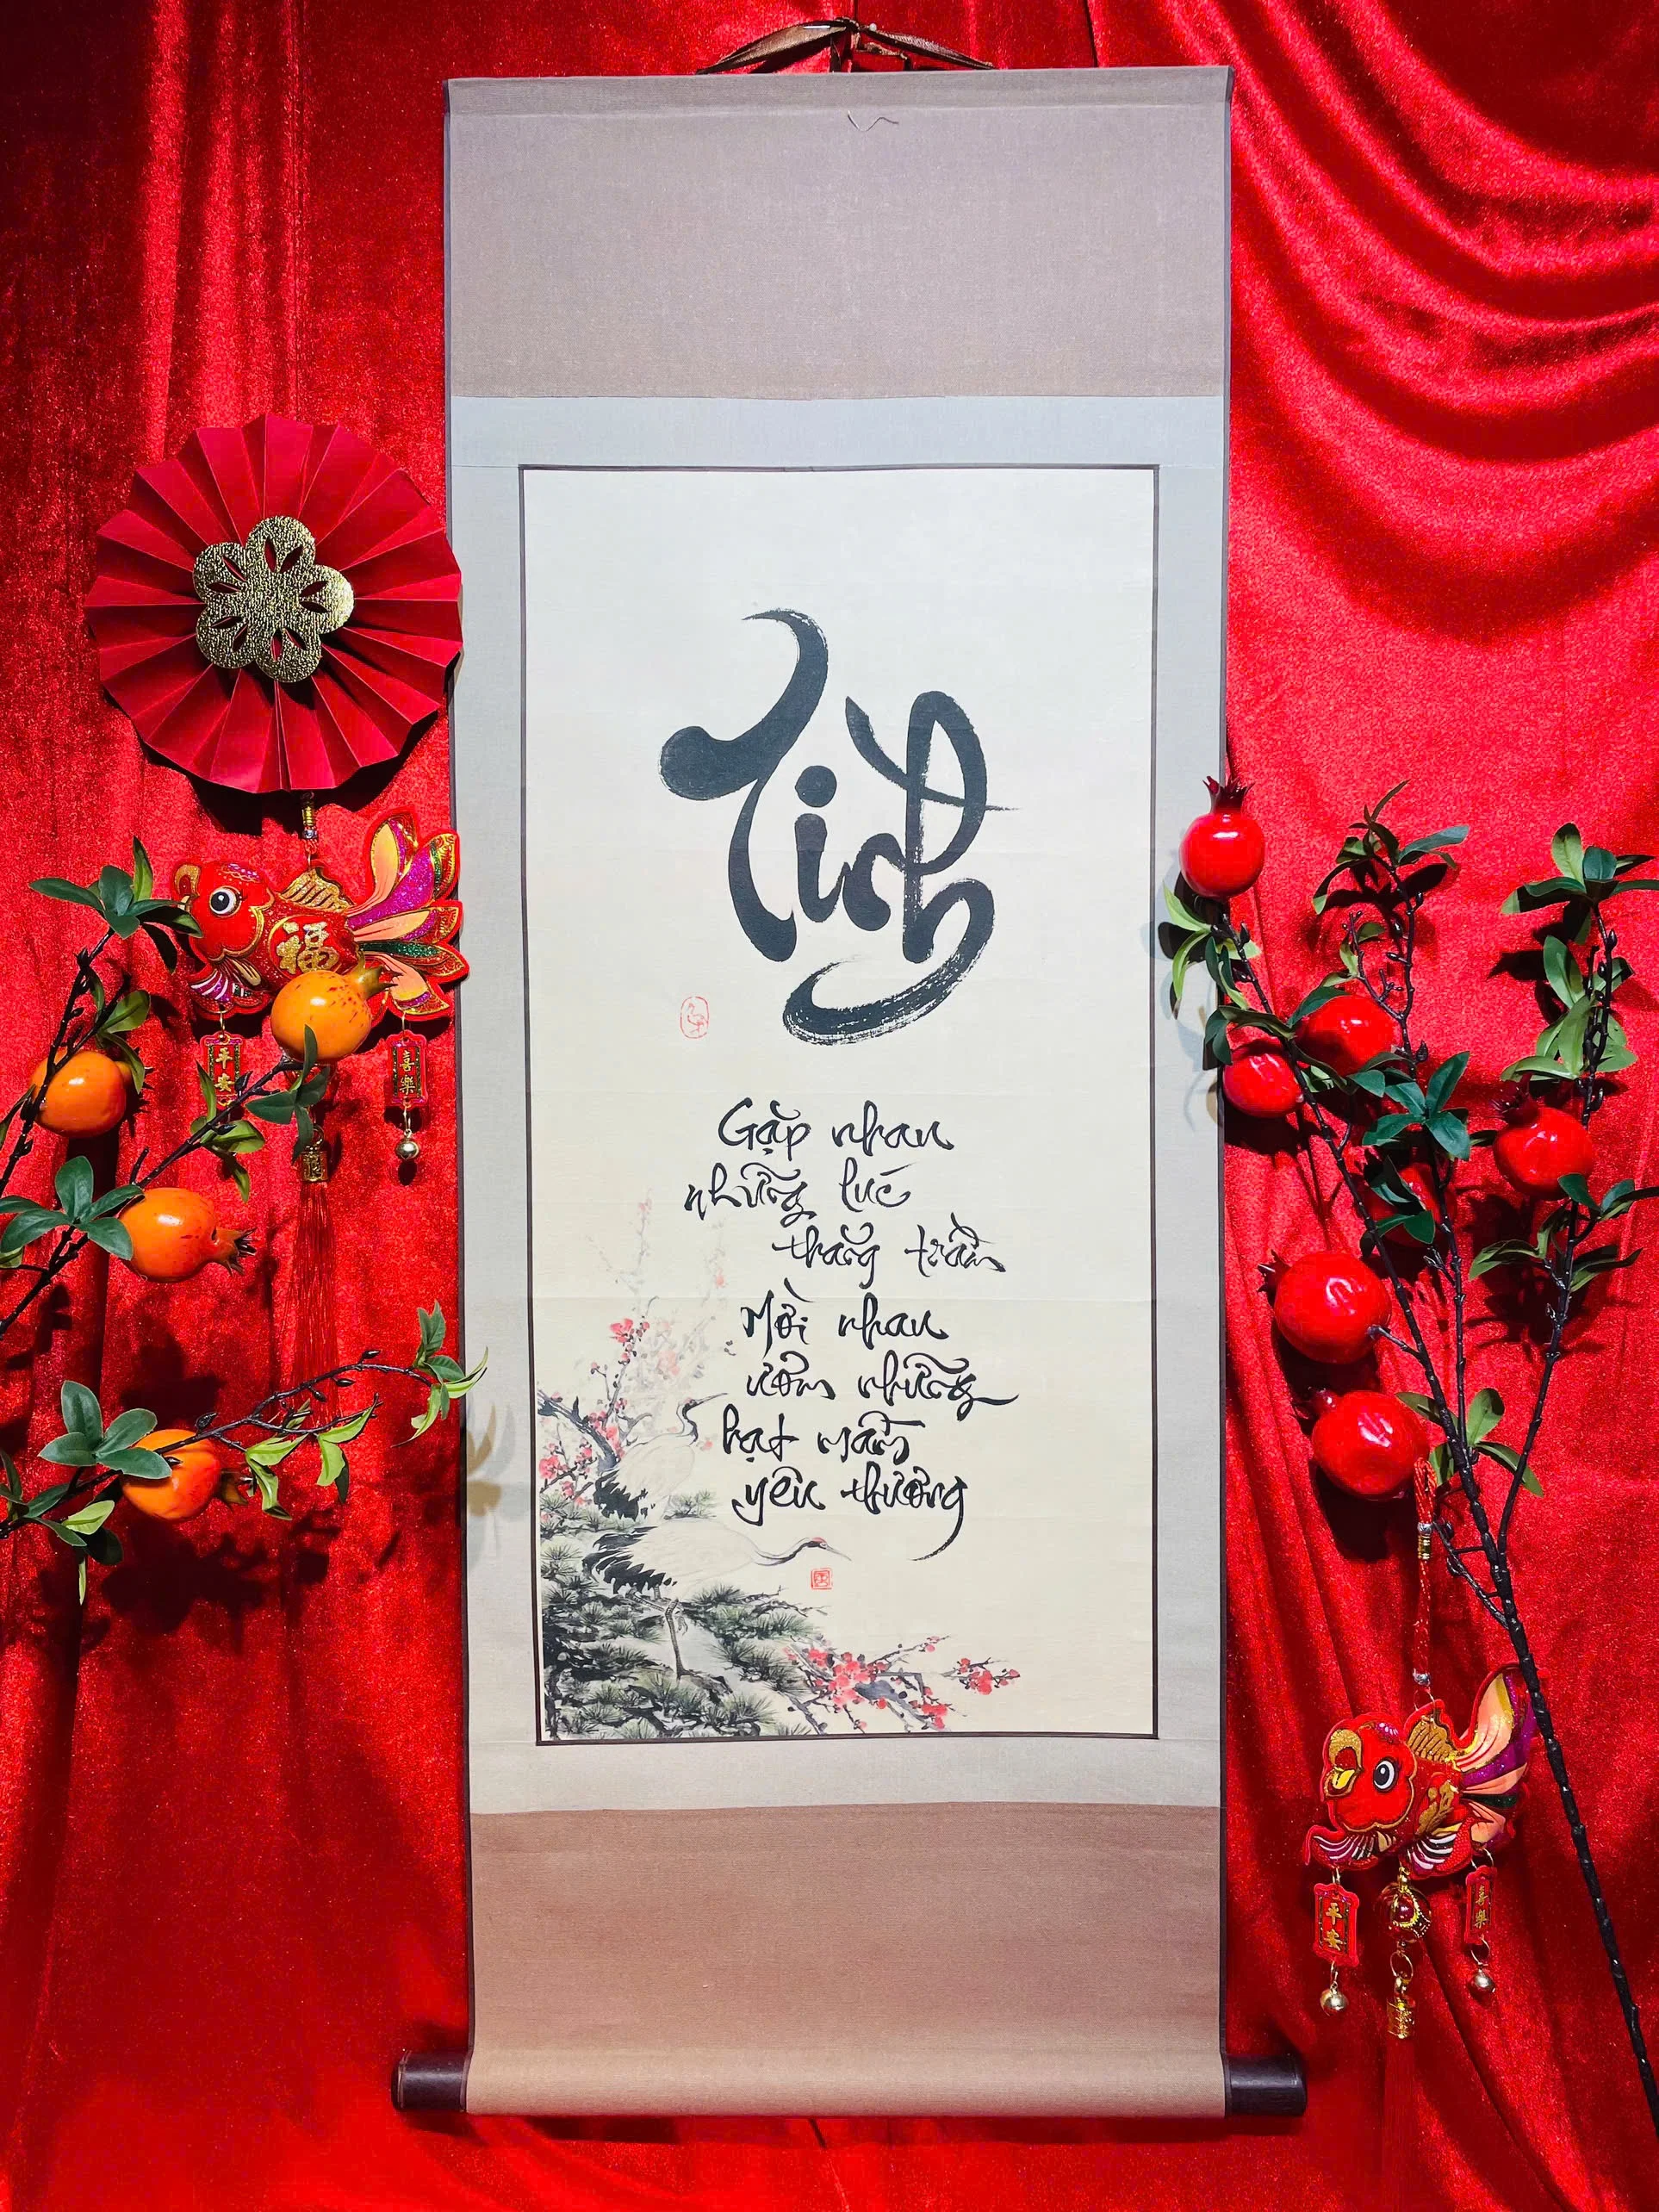 Tình
Gặp nhau
những lúc
thăng trầm
Mời nhau
ươm những
hạt mầm
yêu thương
福
平安
喜樂
平安
喜樂